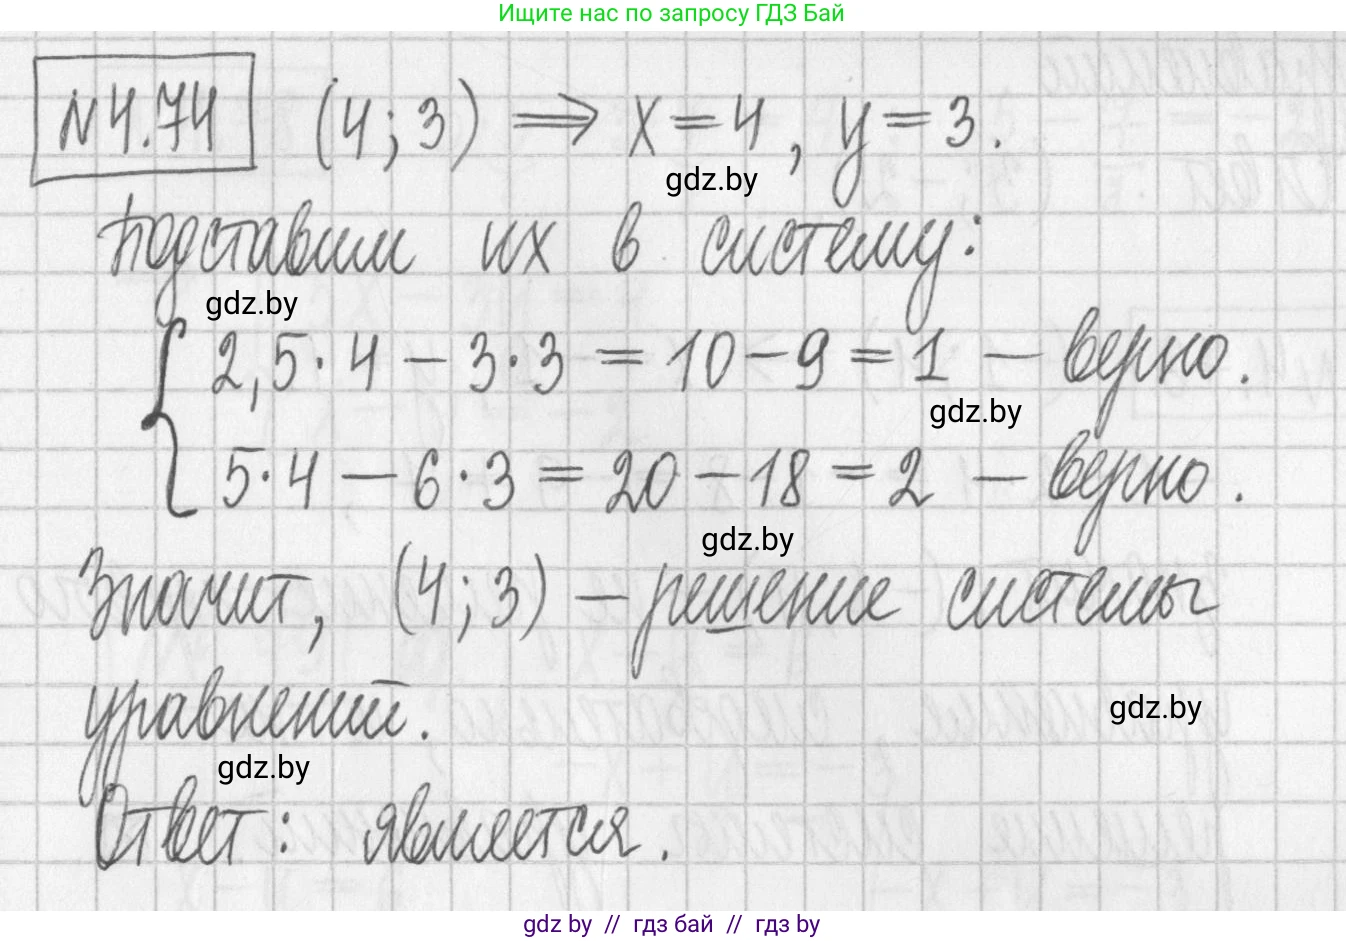 Ищите нас по запросу ГДЗ Бай
№4.74 (4;3) ⇒ x=4, y=3.
gdz.by
Подставим их в систему:
gdz.by
{ 2,5·4 − 3·3 = 10−9 = 1 — верно.
gdz.by
5·4 − 6·3 = 20−18 = 2 — верно.
gdz.by
Значит, (4;3) — решение системы
уравнений.
gdz.by
gdz.by
Ответ: является.
gdz.by // гдз бай // гдз by